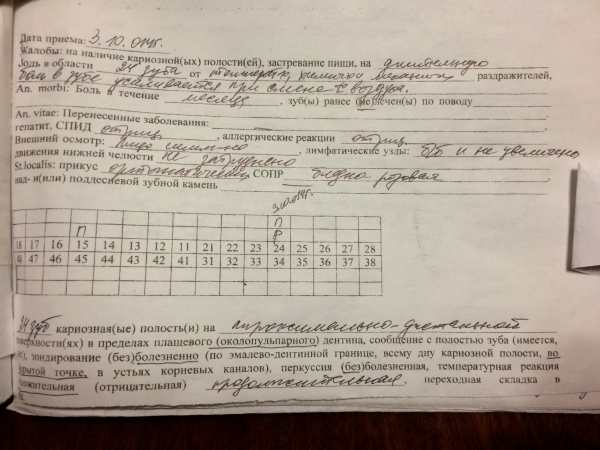 Дата приема: 3.10.014г.
Жалобы: на наличие кариозной(ых) полости(ей), застревание пищи, на длительную
боль в области 24 зуба от температ, химич механич раздражителей,
боль в зубе усиливается при смене t° воздуха.
An. morbi: Боль в течение месяца, зуб(ы) ранее (не)лечен(ы) по поводу
An. vitae: Перенесенные заболевания:
гепатит, СПИД отриц, аллергические реакции отриц.
Внешний осмотр: лицо симм-но, лимфатические узлы: б/б и не увеличены
движения нижней челюсти не затруднено
St.localis: прикус ортогнатический СОПР бледно розовая
над- и(или) поддесневой зубной камень
3.10.014г.
П
П Р
18 17 16 15 14 13 12 11 21 22 23 24 25 26 27 28
48 47 46 45 44 43 42 41 31 32 33 34 35 36 37 38
24 зуб кариозная(ые) полость(и) на апроксимально-дистальной
поверхности(ях) в пределах плащевого (околопульпарного) дентина, сообщение с полостью зуба (имеется,
нет), зондирование (без)болезненно (по эмалево-дентинной границе, всему дну кариозной полости, во
вскрытой точке, в устьях корневых каналов), перкуссия (без)болезненная, температурная реакция
положительная (отрицательная) продолжительная. переходная складка в